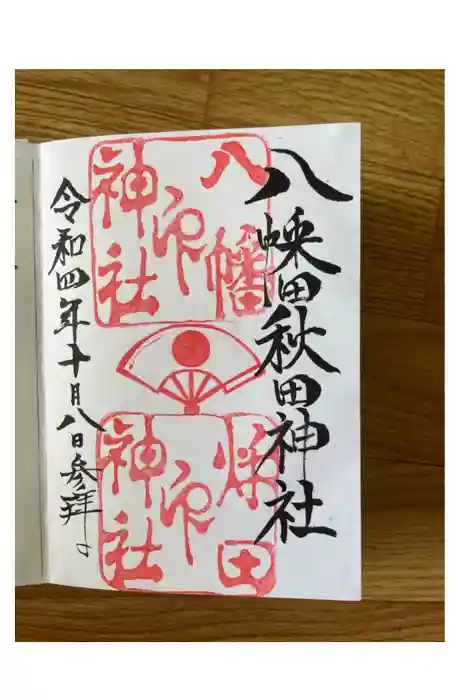 八幡秋田神社
八幡
神社
印
秋田
神社
印
令和四年十月八日参拝